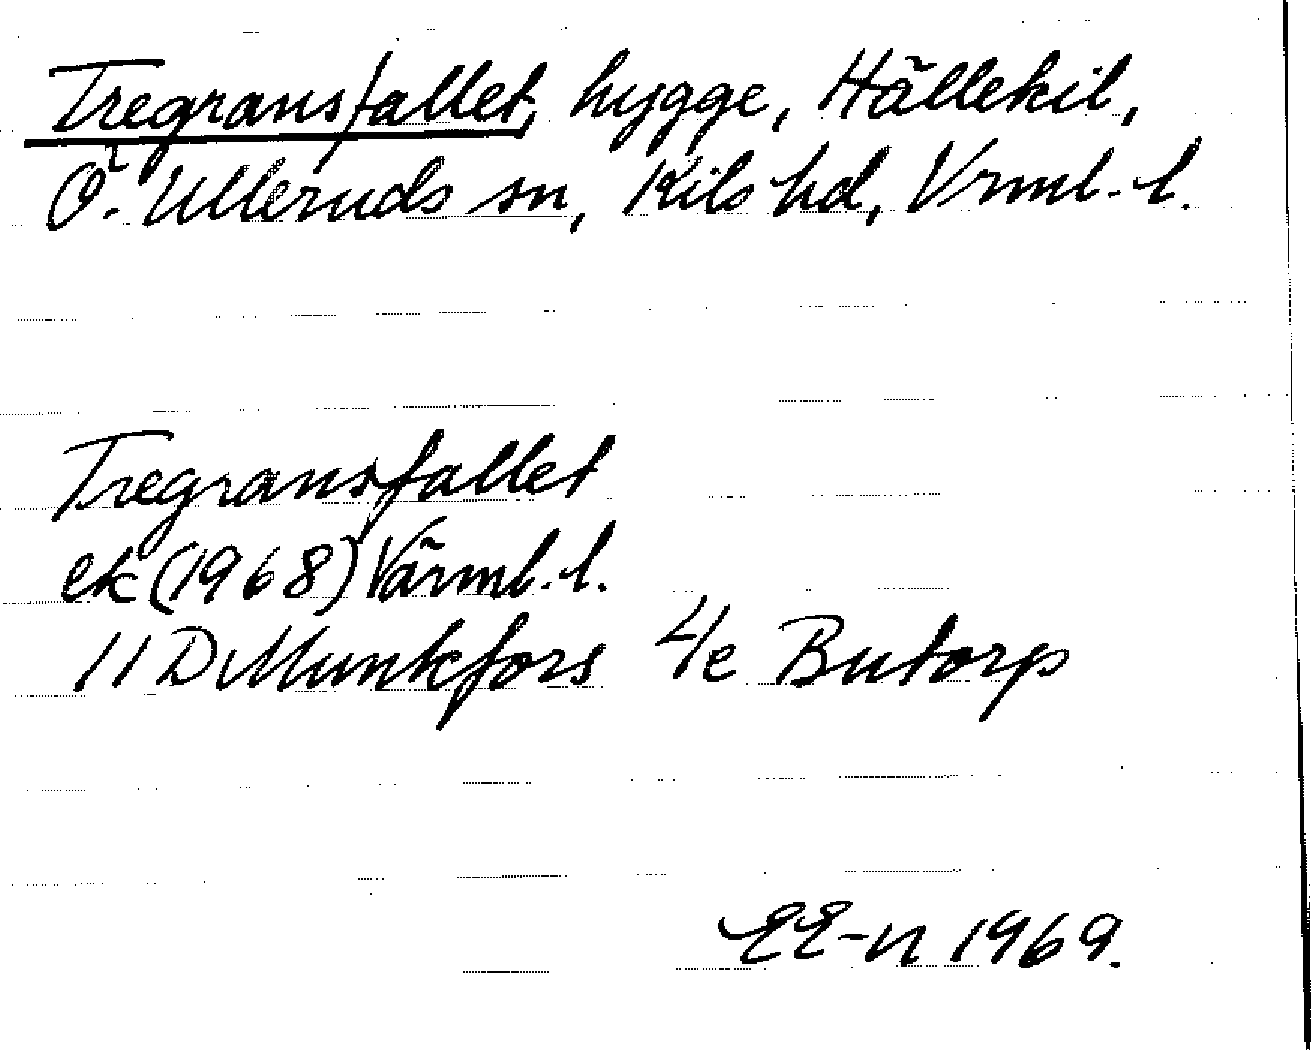 Tregransfallet, hygge, Hällekil,
Ö. Ulleruds sn, Kils hd, Vrml. l.
Tregransfallet
ek (1968) Värml. l.
11 D Munkfors 4/e Butorp
EE-n 1969.